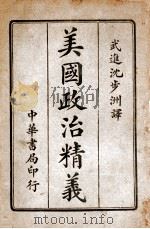 武進沈步洲譯
美國政治精義
中華書局印行
www.toutoushu.com